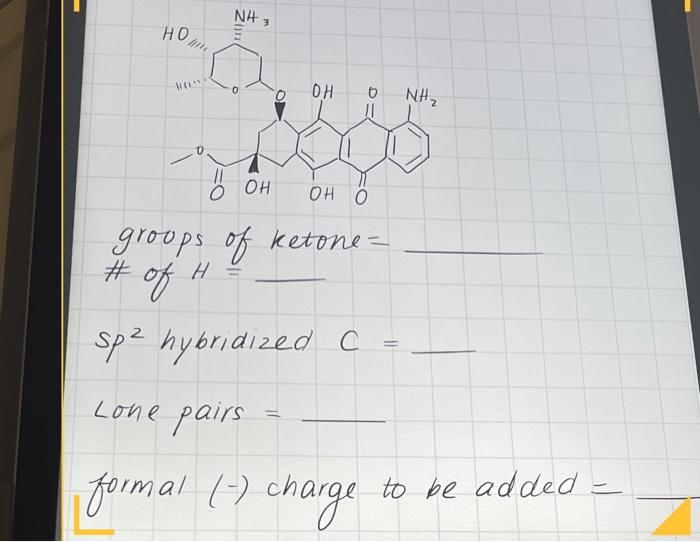 NH3
HO
O
O OH O NH2
O
O OH OH O
groups of ketone = ______
# of H = ____
sp² hybridized C = ____
Lone pairs = _____
formal (-) charge to be added = ____